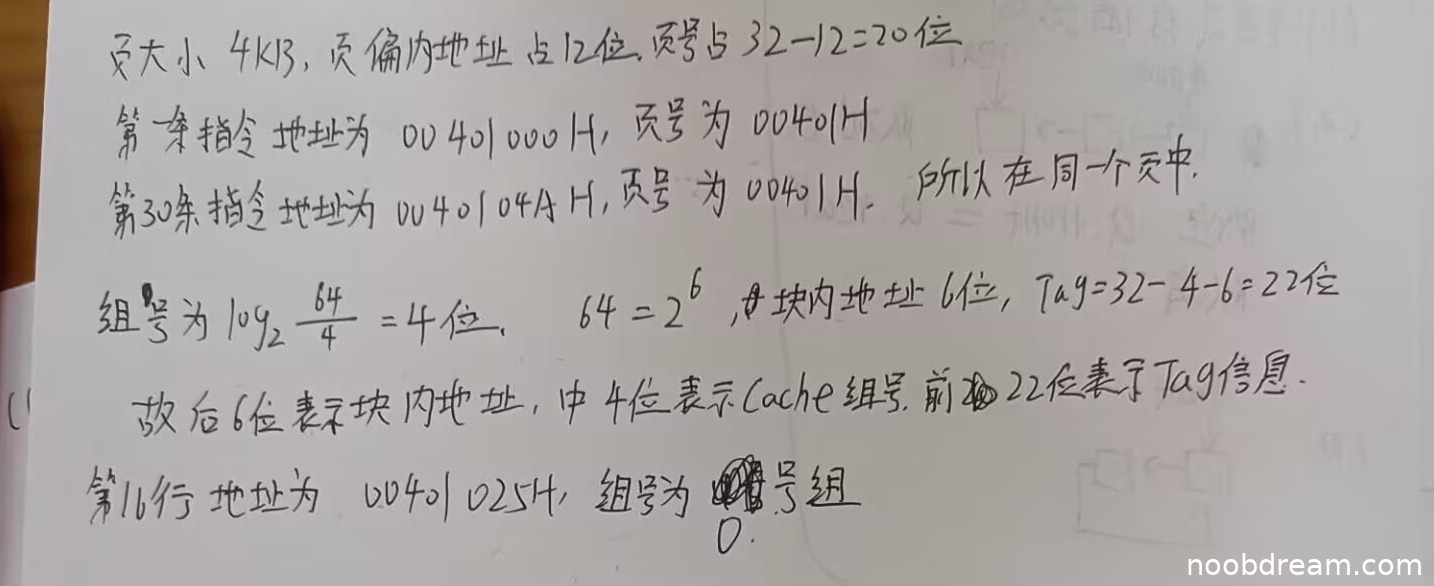 页大小 4KB, 页偏内地址占12位, 页号占 32-12=20位
第一条指令地址为 00401000H, 页号为 00401H
第30条指令地址为 0040104AH, 页号为 00401H. 所以在同一个页中.
组号为 log₂ 64/4 = 4位. 64 = 2⁶, 块内地址 6位, Tag=32-4-6=22位
故后6位表示块内地址, 中4位表示Cache组号. 前22位表示Tag信息.
第16行地址为 00401025H, 组号为 0 号组
noobdream.com